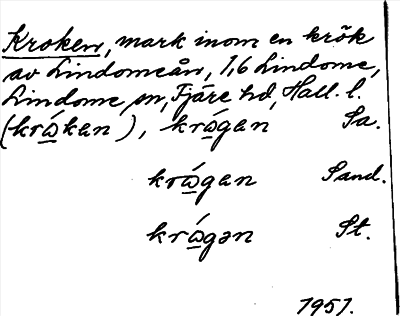 Kroken, mark inom en krök
av Lindomeån, 1,6 Lindome,
Lindome sn, Fjäre hd, Hall. l.
(krώkan), krώgan Sa.
krώgan Sand.
krώgən St.
1951.